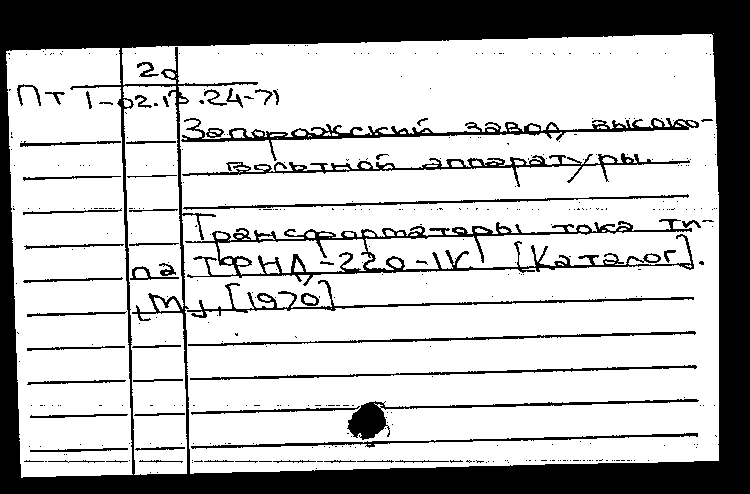 20
Пт 1-02.13.24-71
Запорожский завод высоко-
вольтной аппаратуры.
Трансформаторы тока ти-
па ТФНД-220-IV [Каталог].
[М], [1970]